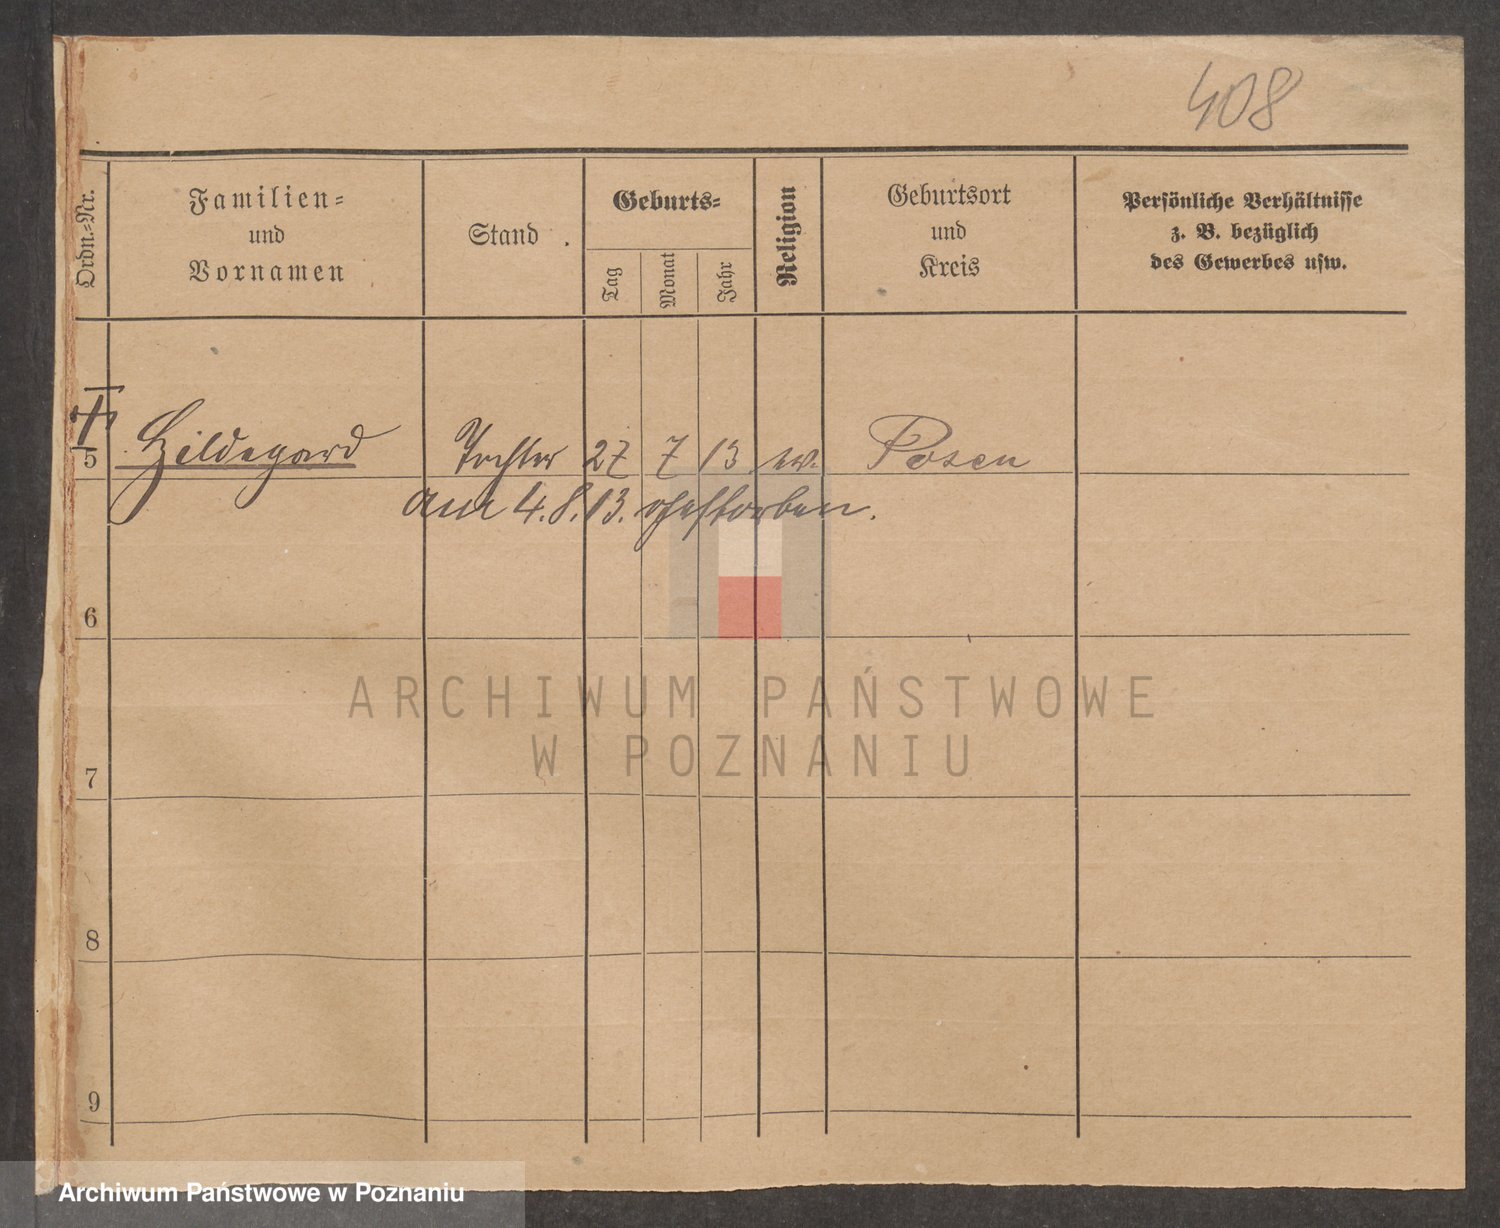 408
Ordn.-Nr.
Familien-
und
Vornamen
Stand
Geburts-
Tag
Monat
Jahr
Religion
Geburtsort
und
Kreis
Persönliche Verhältnisse
z. B. bezüglich
des Gewerbes usw.
5 Hildegard Tochter 27 7 13 ev. Posen
am 4.8.13. gestorben.
6
ARCHIWUM PAŃSTWOWE
W POZNANIU
7
8
9
Archiwum Państwowe w Poznaniu